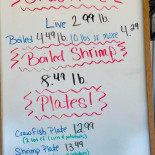 Live 2.99 lb.
Boiled 4.49 lb. 10 lbs or more 4.29
Boiled Shrimp
8.49 lb.
Plates!
Crawfish Plate 12.99
Shrimp Plate 13.49